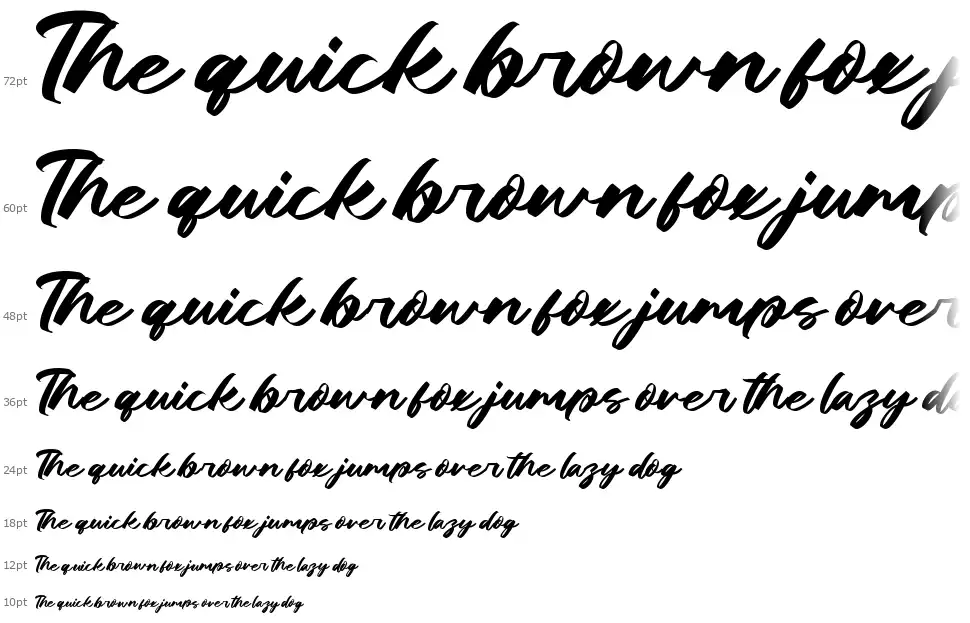 72pt The quick brown fox j
60pt The quick brown fox jump
48pt The quick brown fox jumps over
36pt The quick brown fox jumps over the lazy do
24pt The quick brown fox jumps over the lazy dog
18pt The quick brown fox jumps over the lazy dog
12pt The quick brown fox jumps over the lazy dog
10pt The quick brown fox jumps over the lazy dog